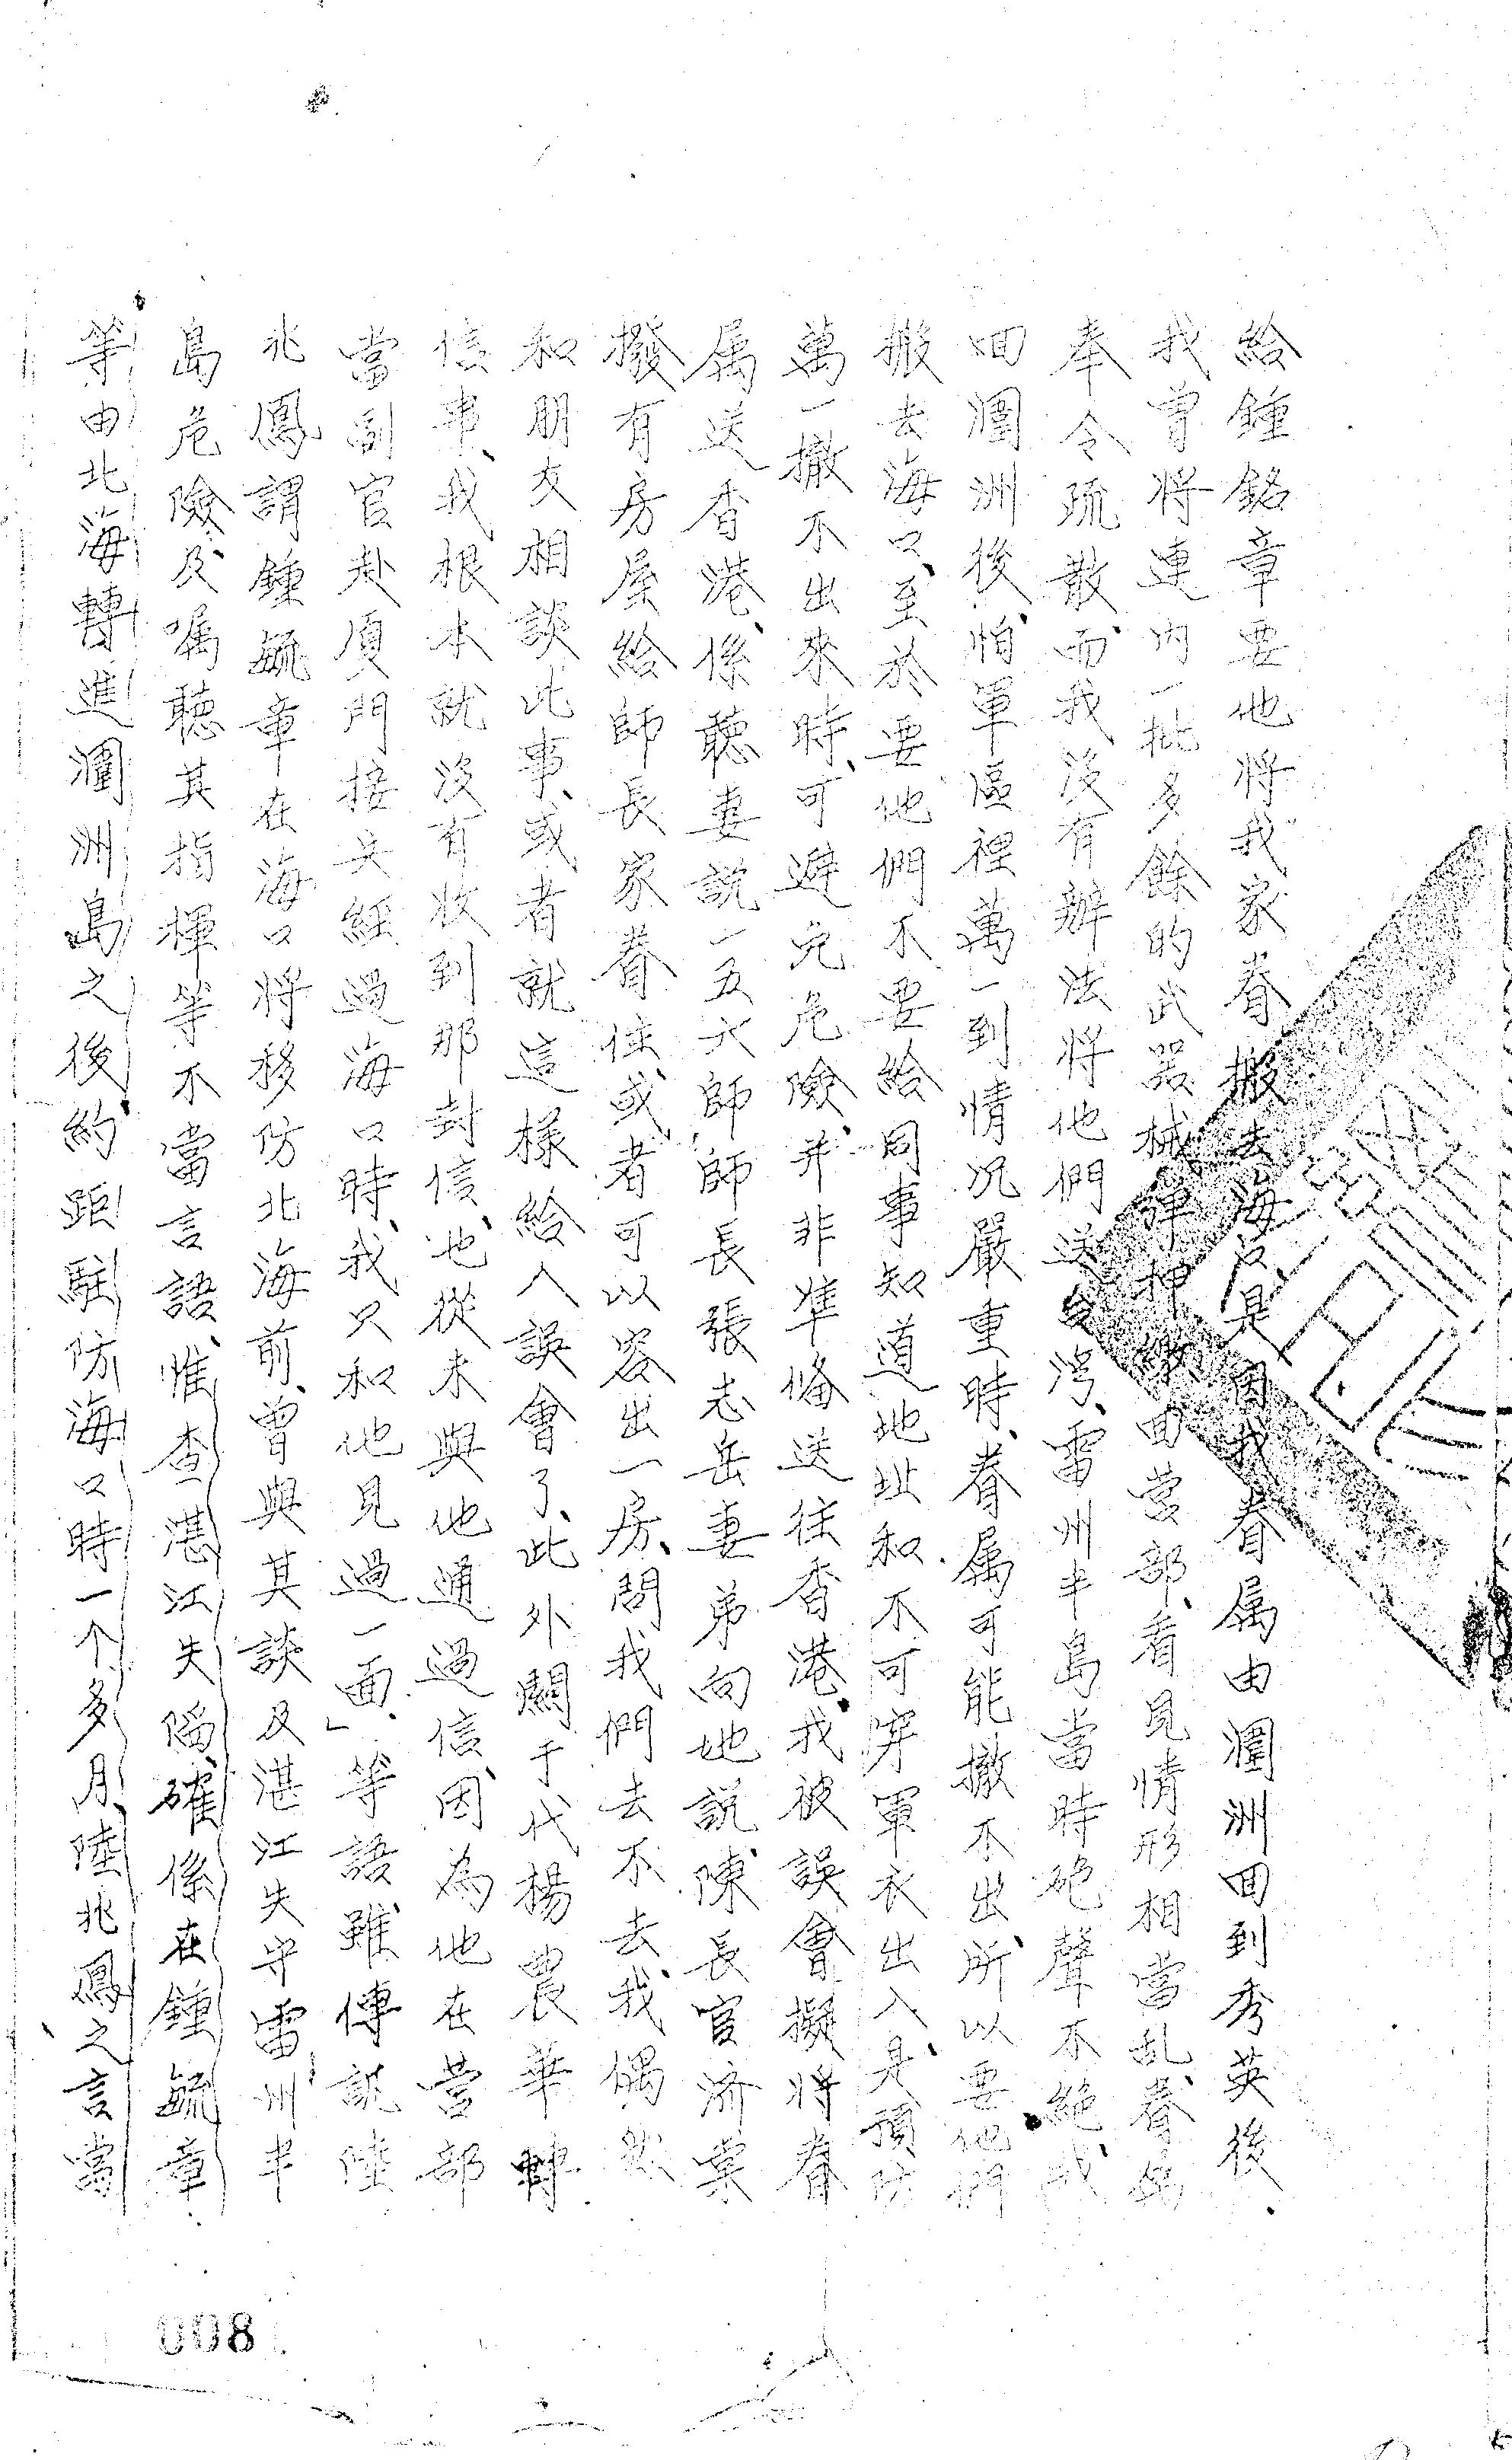 給鍾銘章要他將我家眷搬去海口、是因我眷属由潿洲囬到秀英後、
我曾將連內一批多餘的武器械弹押繳囬营部、看見情形相當乱、眷属
奉令疏散、而我没有辦法將他們送台湾、雷州半島當時砲聲不絕、我
囬潿洲後、怕軍區裡萬一到情况嚴重時、眷属可能撤不出、所以要他們
搬去海口、至於要他們不要給同事知道地址和不可穿軍衣出入、是預防
萬一撤不出來時、可避免危險、并非準俻送往香港、我被誤會擬將眷
属送香港、係聽妻説一五六師師長張志岳妻弟向她説、陳長官濟棠
撥有房屋給師長家眷住、或者可以容出一房、問我們去不去、我偶然
和朋友相談此事、或者就這樣給人誤會了、此外關于代楊農華轉
信事、我根本就没有收到那封信、也從未與他通過信、因為他在营部
當副官赴厦門接兵經過海口時、我只和他見過一面、」等語、雖傳訊陸
兆鳳謂鍾毓章在海口將移防北海前、曾與其談及湛江失守雷州半
島危險及嘱聽其指揮等不當言語、惟查湛江失陷、確係在鍾毓章
等由北海轉進潿洲島之後、約距駐防海口時一个多月、陸兆鳳之言、當
008